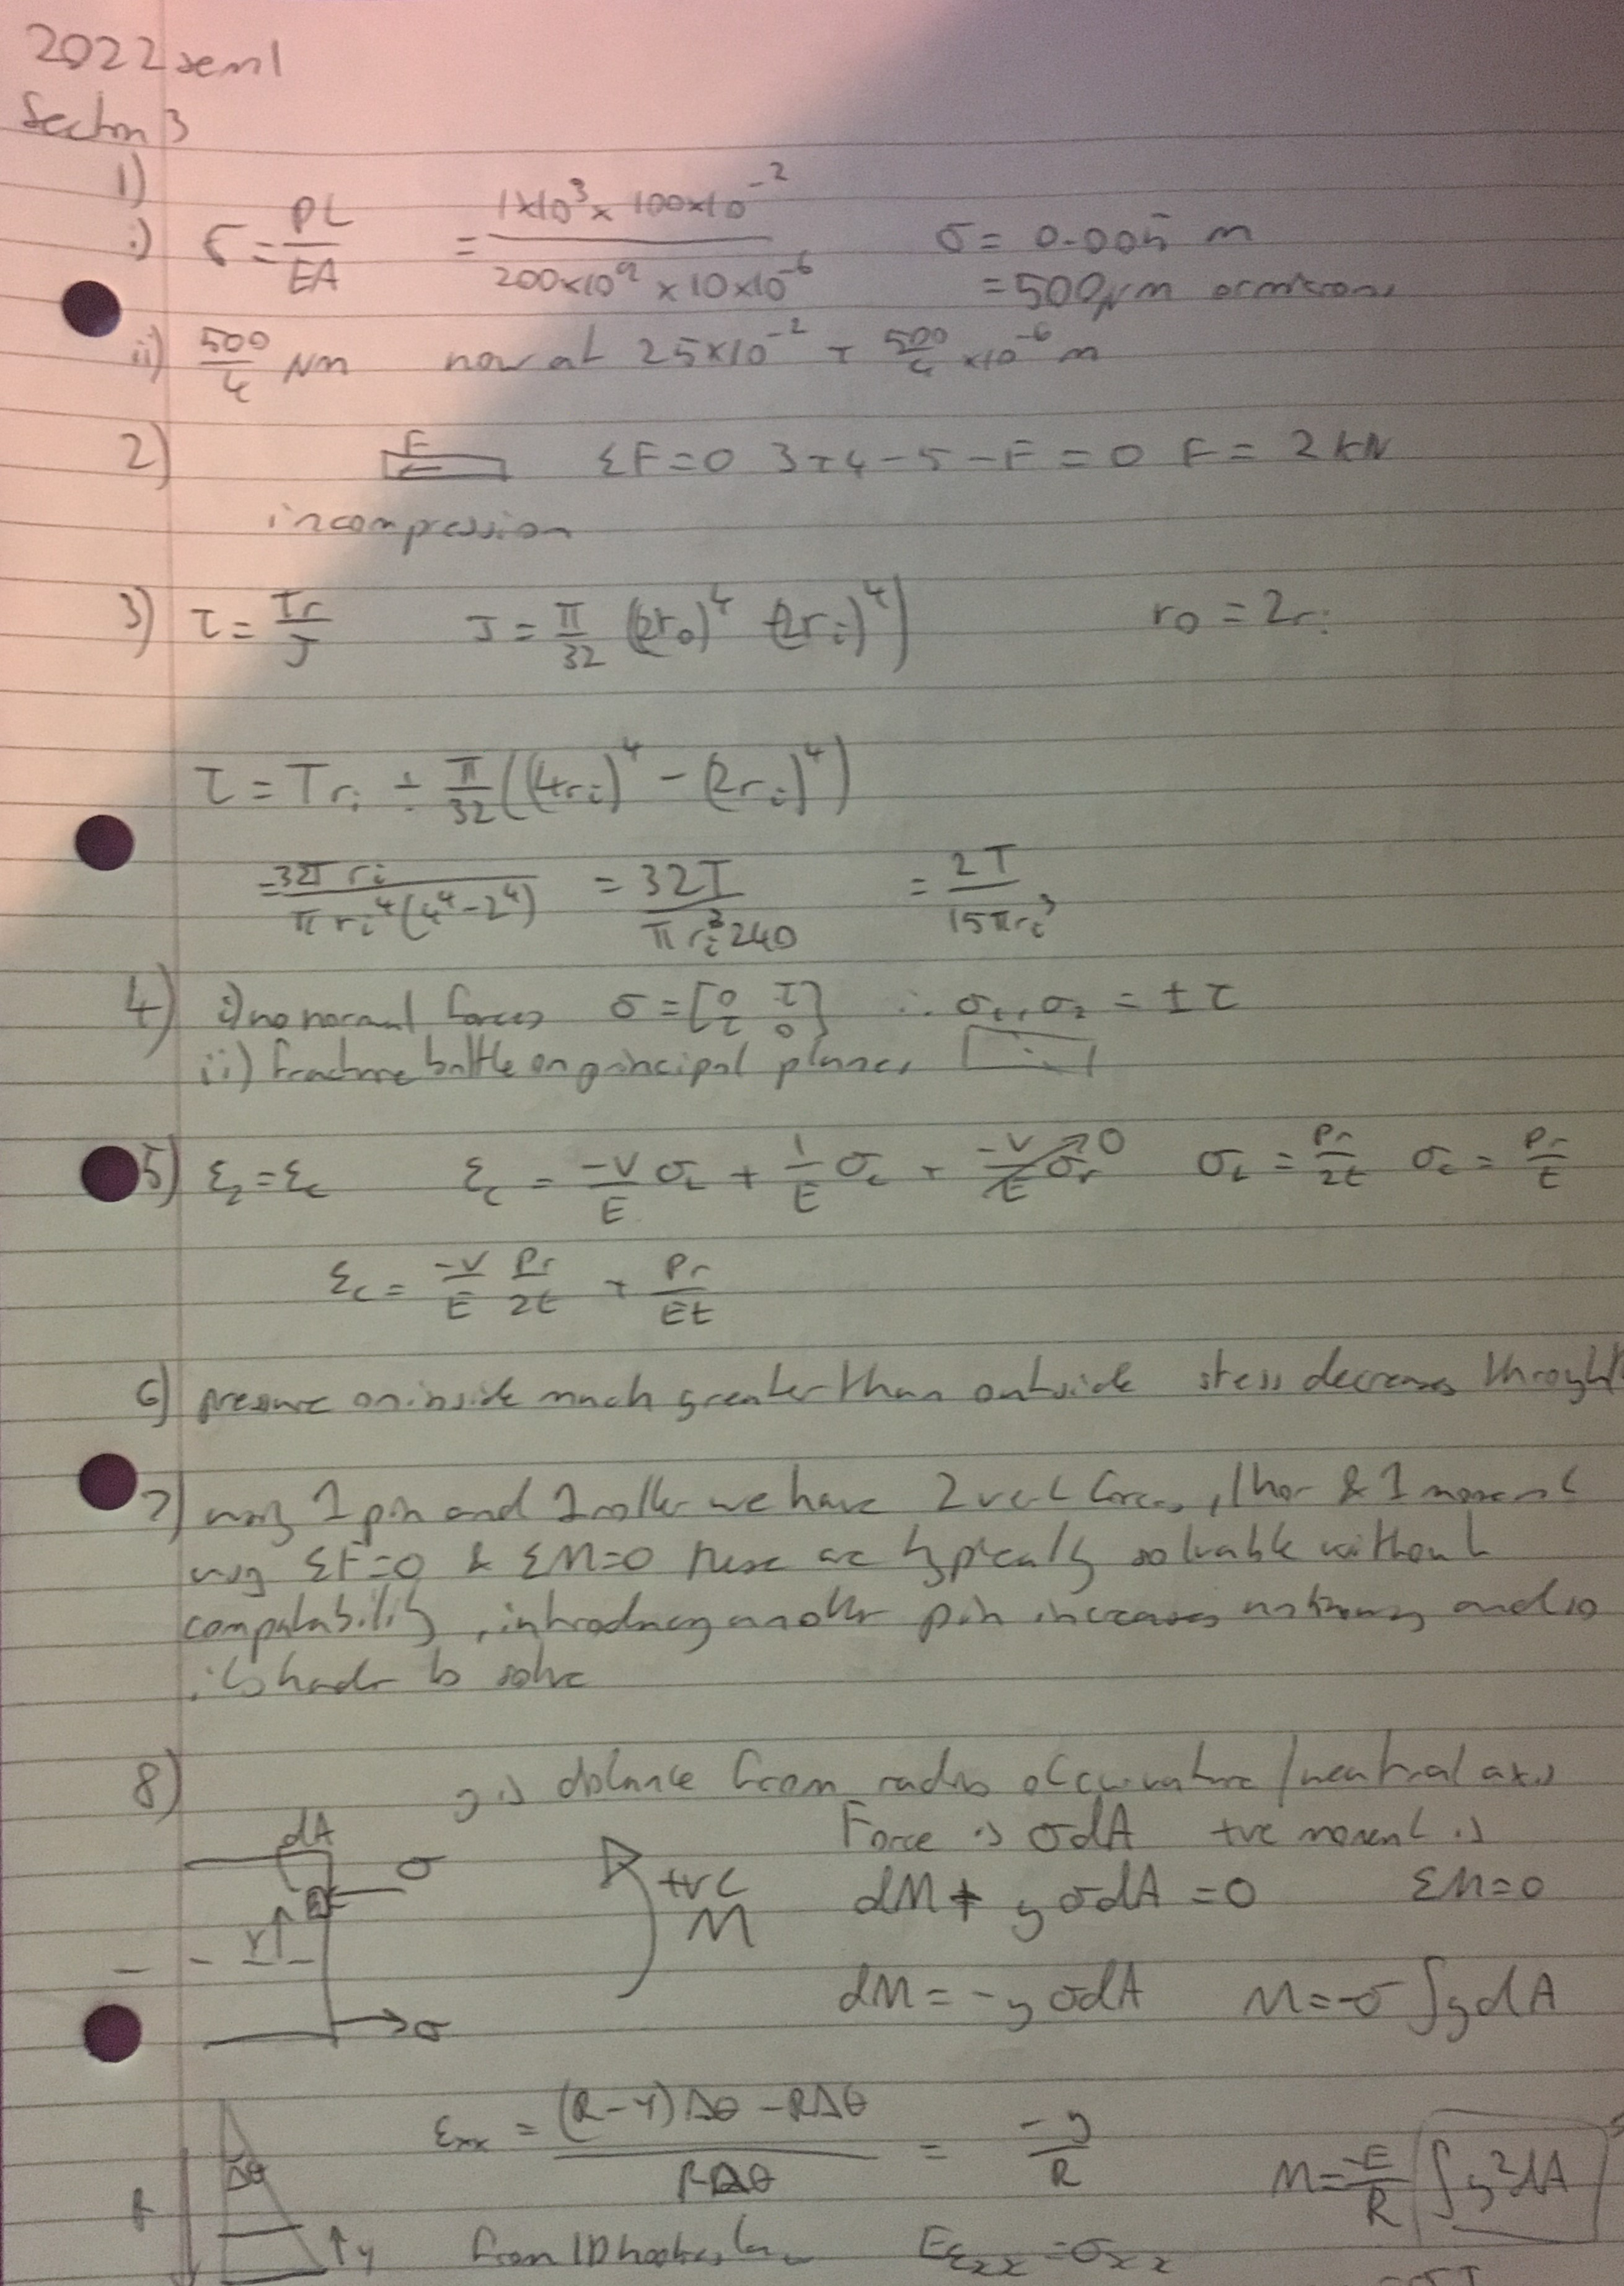 2022 sem 1
Section 3
1)
i) δ = PL/EA = (1×10³ × 100×10⁻²)/(200×10⁹ × 10×10⁻⁶) σ = 0.005 m
= 500 μm or microns
ii) 500/4 Nm now at 25×10⁻² + 500/4 ×10⁻⁶ m
2) F ΣF=0 3+4-5-F=0 F = 2 kN
in compression
3) τ = Tr/J J = π/32 ((2r₀)⁴ - (2rᵢ)⁴) r₀ = 2rᵢ
τ = Trᵢ ÷ π/32 ((4rᵢ)⁴ - (2rᵢ)⁴)
= 32T rᵢ/(π rᵢ⁴(4⁴-2⁴)) = 32T/(π rᵢ³ 240) = 2T/(15πrᵢ³)
4) i) no normal forces σ = [0 τ; τ 0] ∴ σ₁, σ₂ = ± τ
ii) fracture brittle on principal planes
5) ε₂ = εc εc = -ν/E σL + 1/E σc + -ν/E σr → 0 σL = Pr/2t σc = Pr/t
εc = -ν/E Pr/2t + Pr/Et
6) pressure on inside much greater than outside stress decreases through
7) using 1 pin and 1 roller we have 2 vert forces, 1 hor & 1 moment
using ΣF=0 & ΣM=0 these are typically solvable without
compatability, introducing another pin increases and so
its harder to solve
8) y is distance from radius of curvature / neutral axis
dA Force is σdA +ve moment is
σ +ve M dM + yσdA = 0 ΣM=0
Y
dM = -yσdA M = -σ ∫ydA
σ
εxx = ((R-Y)Δθ - RΔθ)/RΔθ = -y/R M = -E/R ∫y²dA
Δθ
R ↑y from 1D hookes law Eεxx = σxx